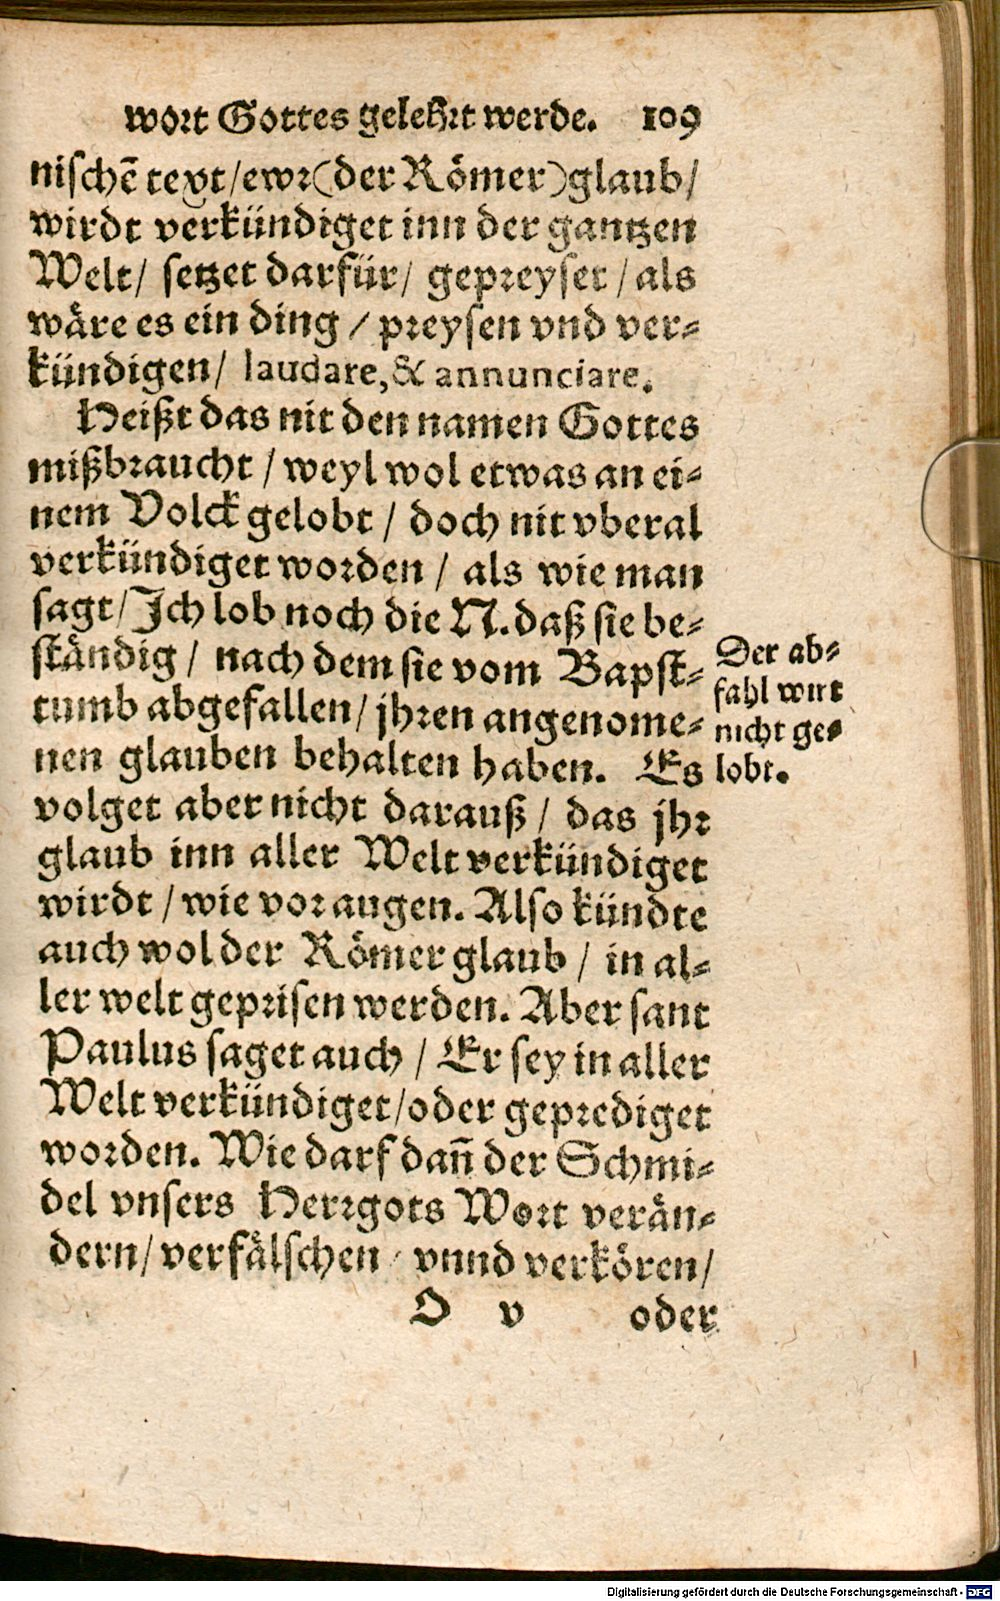 wort Gottes gelehrt werde. 109
nischē text/ewr(der Römer)glaub/
wirdt verkündiget inn der gantzen
Welt/ setzet darfür/ gepreyset/als
wäre es ein ding / preysen vnd ver-
kündigen/ laudare,& annunciare.
Heißt das nit den namen Gottes
mißbraucht / weyl wol etwas an ei-
nem Volck gelobt / doch nit vberal
verkündiget worden / als wie man
sagt/Jch lob noch die N.daß sie be-
ständig / nach dem sie vom Bapst-
tumb abgefallen/ jhren angenome-
nen glauben behalten haben. Es
Der ab-
fahl wirt
nicht ge-
lobt.
volget aber nicht darauß / das jhr
glaub inn aller Welt verkündiget
wirdt / wie vor augen. Also kündte
auch wol der Römer glaub / in al-
ler welt geprisen werden. Aber sant
Paulus saget auch / Er sey in aller
Welt verkündiget/oder geprediget
worden. Wie darf dañ der Schmi-
del vnsers Herrgots Wort verän-
dern/ verfälschen / vnnd verkören/
O v oder
Digitalisierung gefördert durch die Deutsche Forschungsgemeinschaft - DFG